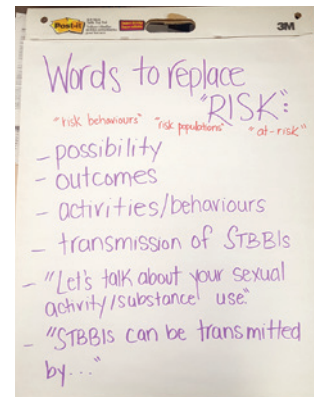 Post-it
3M
Words to replace
"RISK":
"risk behaviours" "risk populations" "at-risk"
- possibility
- outcomes
- activities/behaviours
- transmission of STBBIs
- "Let's talk about your sexual
activity/substance use"
- "STBBIs can be transmitted
by..."